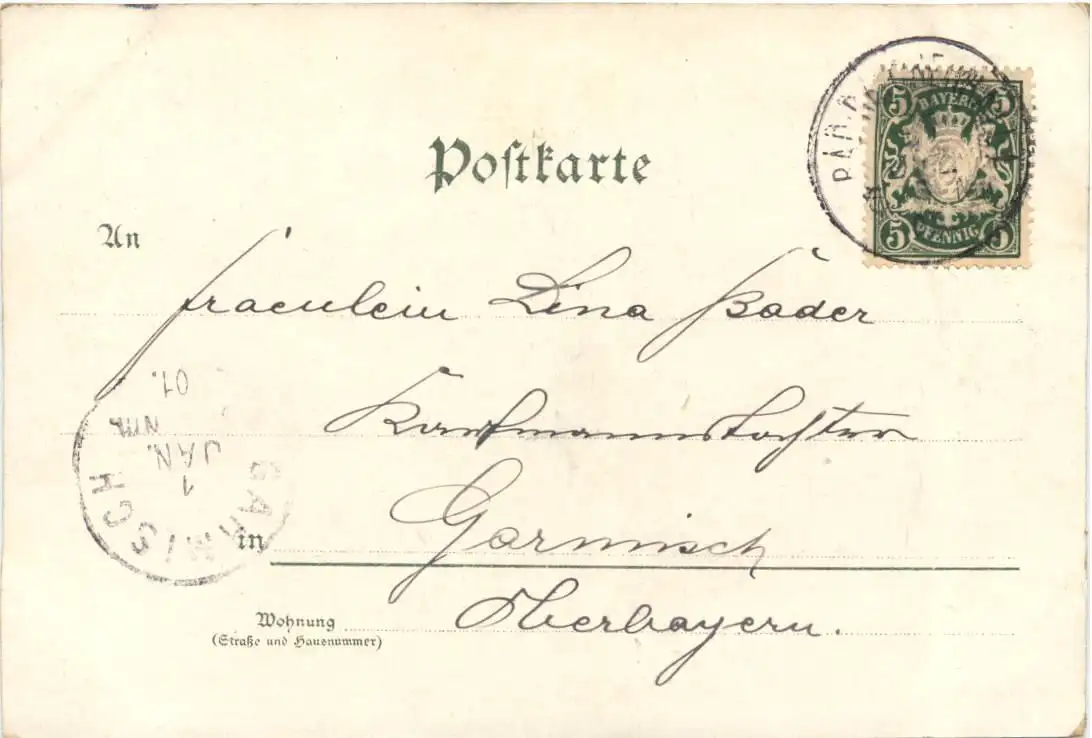 Postkarte
5 5
BAYERN
PFENNIG
5 5
An
Fraeulein Lina Bader
Kaufmannstochter
in Garmisch
Oberbayern.
Wohnung
(Straße und Hausnummer)
GARMISCH
1
JAN.
NM.
01.